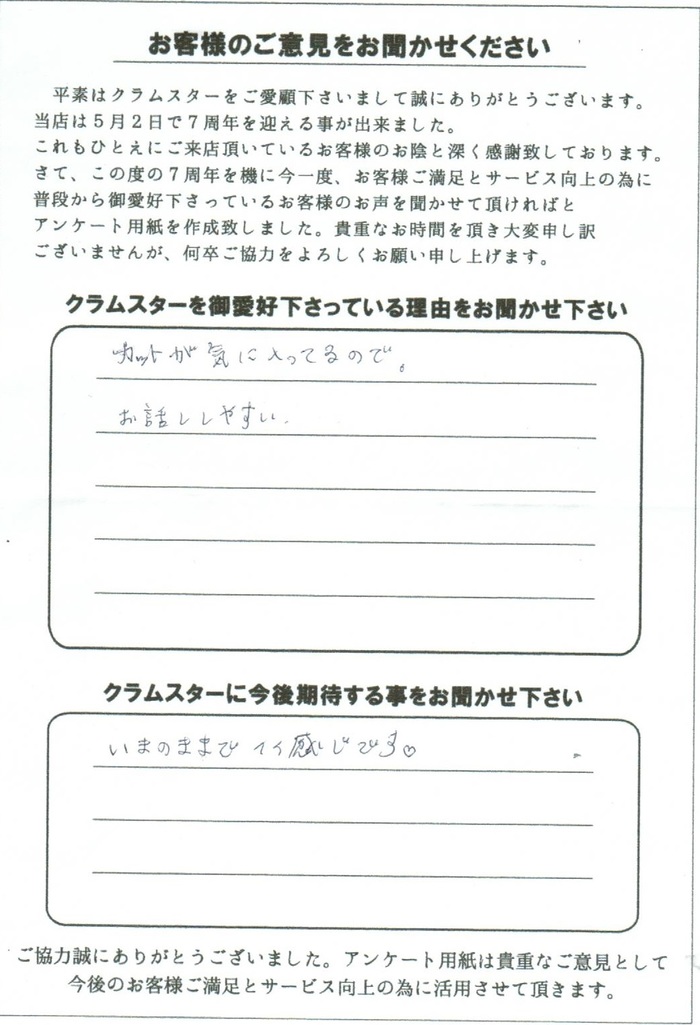 お客様のご意見をお聞かせください
平素はクラムスターをご愛顧下さいまして誠にありがとうございます。
当店は５月２日で７周年を迎える事が出来ました。
これもひとえにご来店頂いているお客様のお陰と深く感謝致しております。
さて、この度の７周年を機に今一度、お客様ご満足とサービス向上の為に
普段から御愛好下さっているお客様のお声を聞かせて頂ければと
アンケート用紙を作成致しました。貴重なお時間を頂き大変申し訳
ございませんが、何卒ご協力をよろしくお願い申し上げます。
クラムスターを御愛好下さっている理由をお聞かせ下さい
カットが気に入ってるので。
お話ししやすい。
クラムスターに今後期待する事をお聞かせ下さい
いまのままでイイ感じです♡
ご協力誠にありがとうございました。アンケート用紙は貴重なご意見として
今後のお客様ご満足とサービス向上の為に活用させて頂きます。